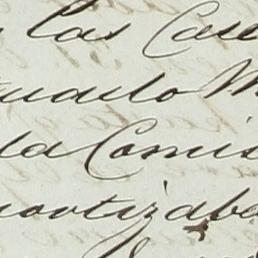 las Case
uado M
la Comis
mortizaba